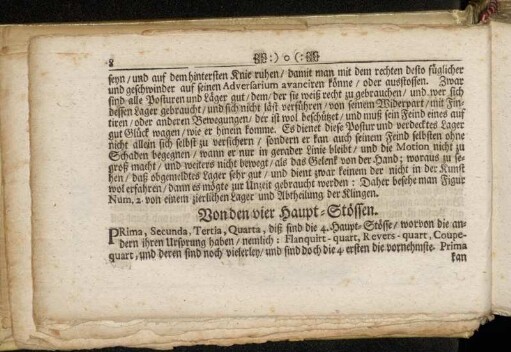 8 :) o (:
seyn / und auf dem hintersten Knie ruhen / damit man mit dem rechten desto füglicher
und geschwinder auf seinen Adversarium avanciren könne / oder ausstossen. Zwar
sind alle Posturen und Läger gut / dem / der sie weiß recht zu gebrauchen / und wer sich
dessen Lager gebraucht / und sich nicht läst verführen / von seinem Widerpart / mit Fin-
tiren / oder anderen Bewegungen / der ist wol beschützet / und muß sein Feind eines auf
gut Glück wagen / wie er hinein komme. Es dienet diese Postur und verdecktes Lager
nicht allein sich selbst zu versichern / sondern er kan auch seinem Feind selbsten ohne
Schaden begegnen / wann er nur in gerader Linie bleibt / und die Motion nicht zu
groß macht / und weiters nicht bewegt / als das Gelenk von der Hand; woraus zu se-
hen / daß obgemeldtes Lager sehr gut / und dient zwar keinem der nicht in der Kunst
wol erfahren / dann es mögte zur Unzeit gebraucht werden : Daher besehe man Figur
Num. 2. von einem zierlichen Lager und Abtheilung der Klingen.
Von den vier Haupt-Stössen.
PRima, Secunda, Tertia, Quarta, diß sind die 4. Haupt-Stösse / worvon die an-
dern ihren Ursprung haben / nemlich : Flanquirt-quart, Revers-quart, Coupe-
quart, und deren sind noch vielerley / und sind doch die 4 ersten die vornehmste. Prima
kan